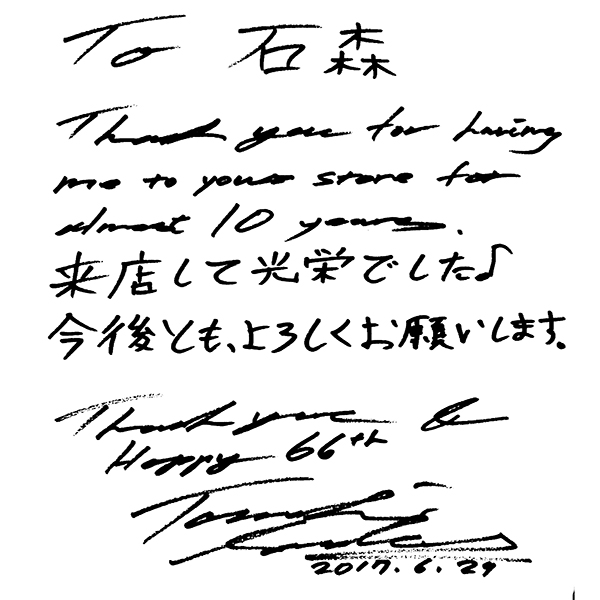 To 石森
Thank you for having
me to your store for
almost 10 years.
来店して光栄でした♪
今後とも、よろしくお願いします。
Thank you &
Happy 66th
2017.6.29